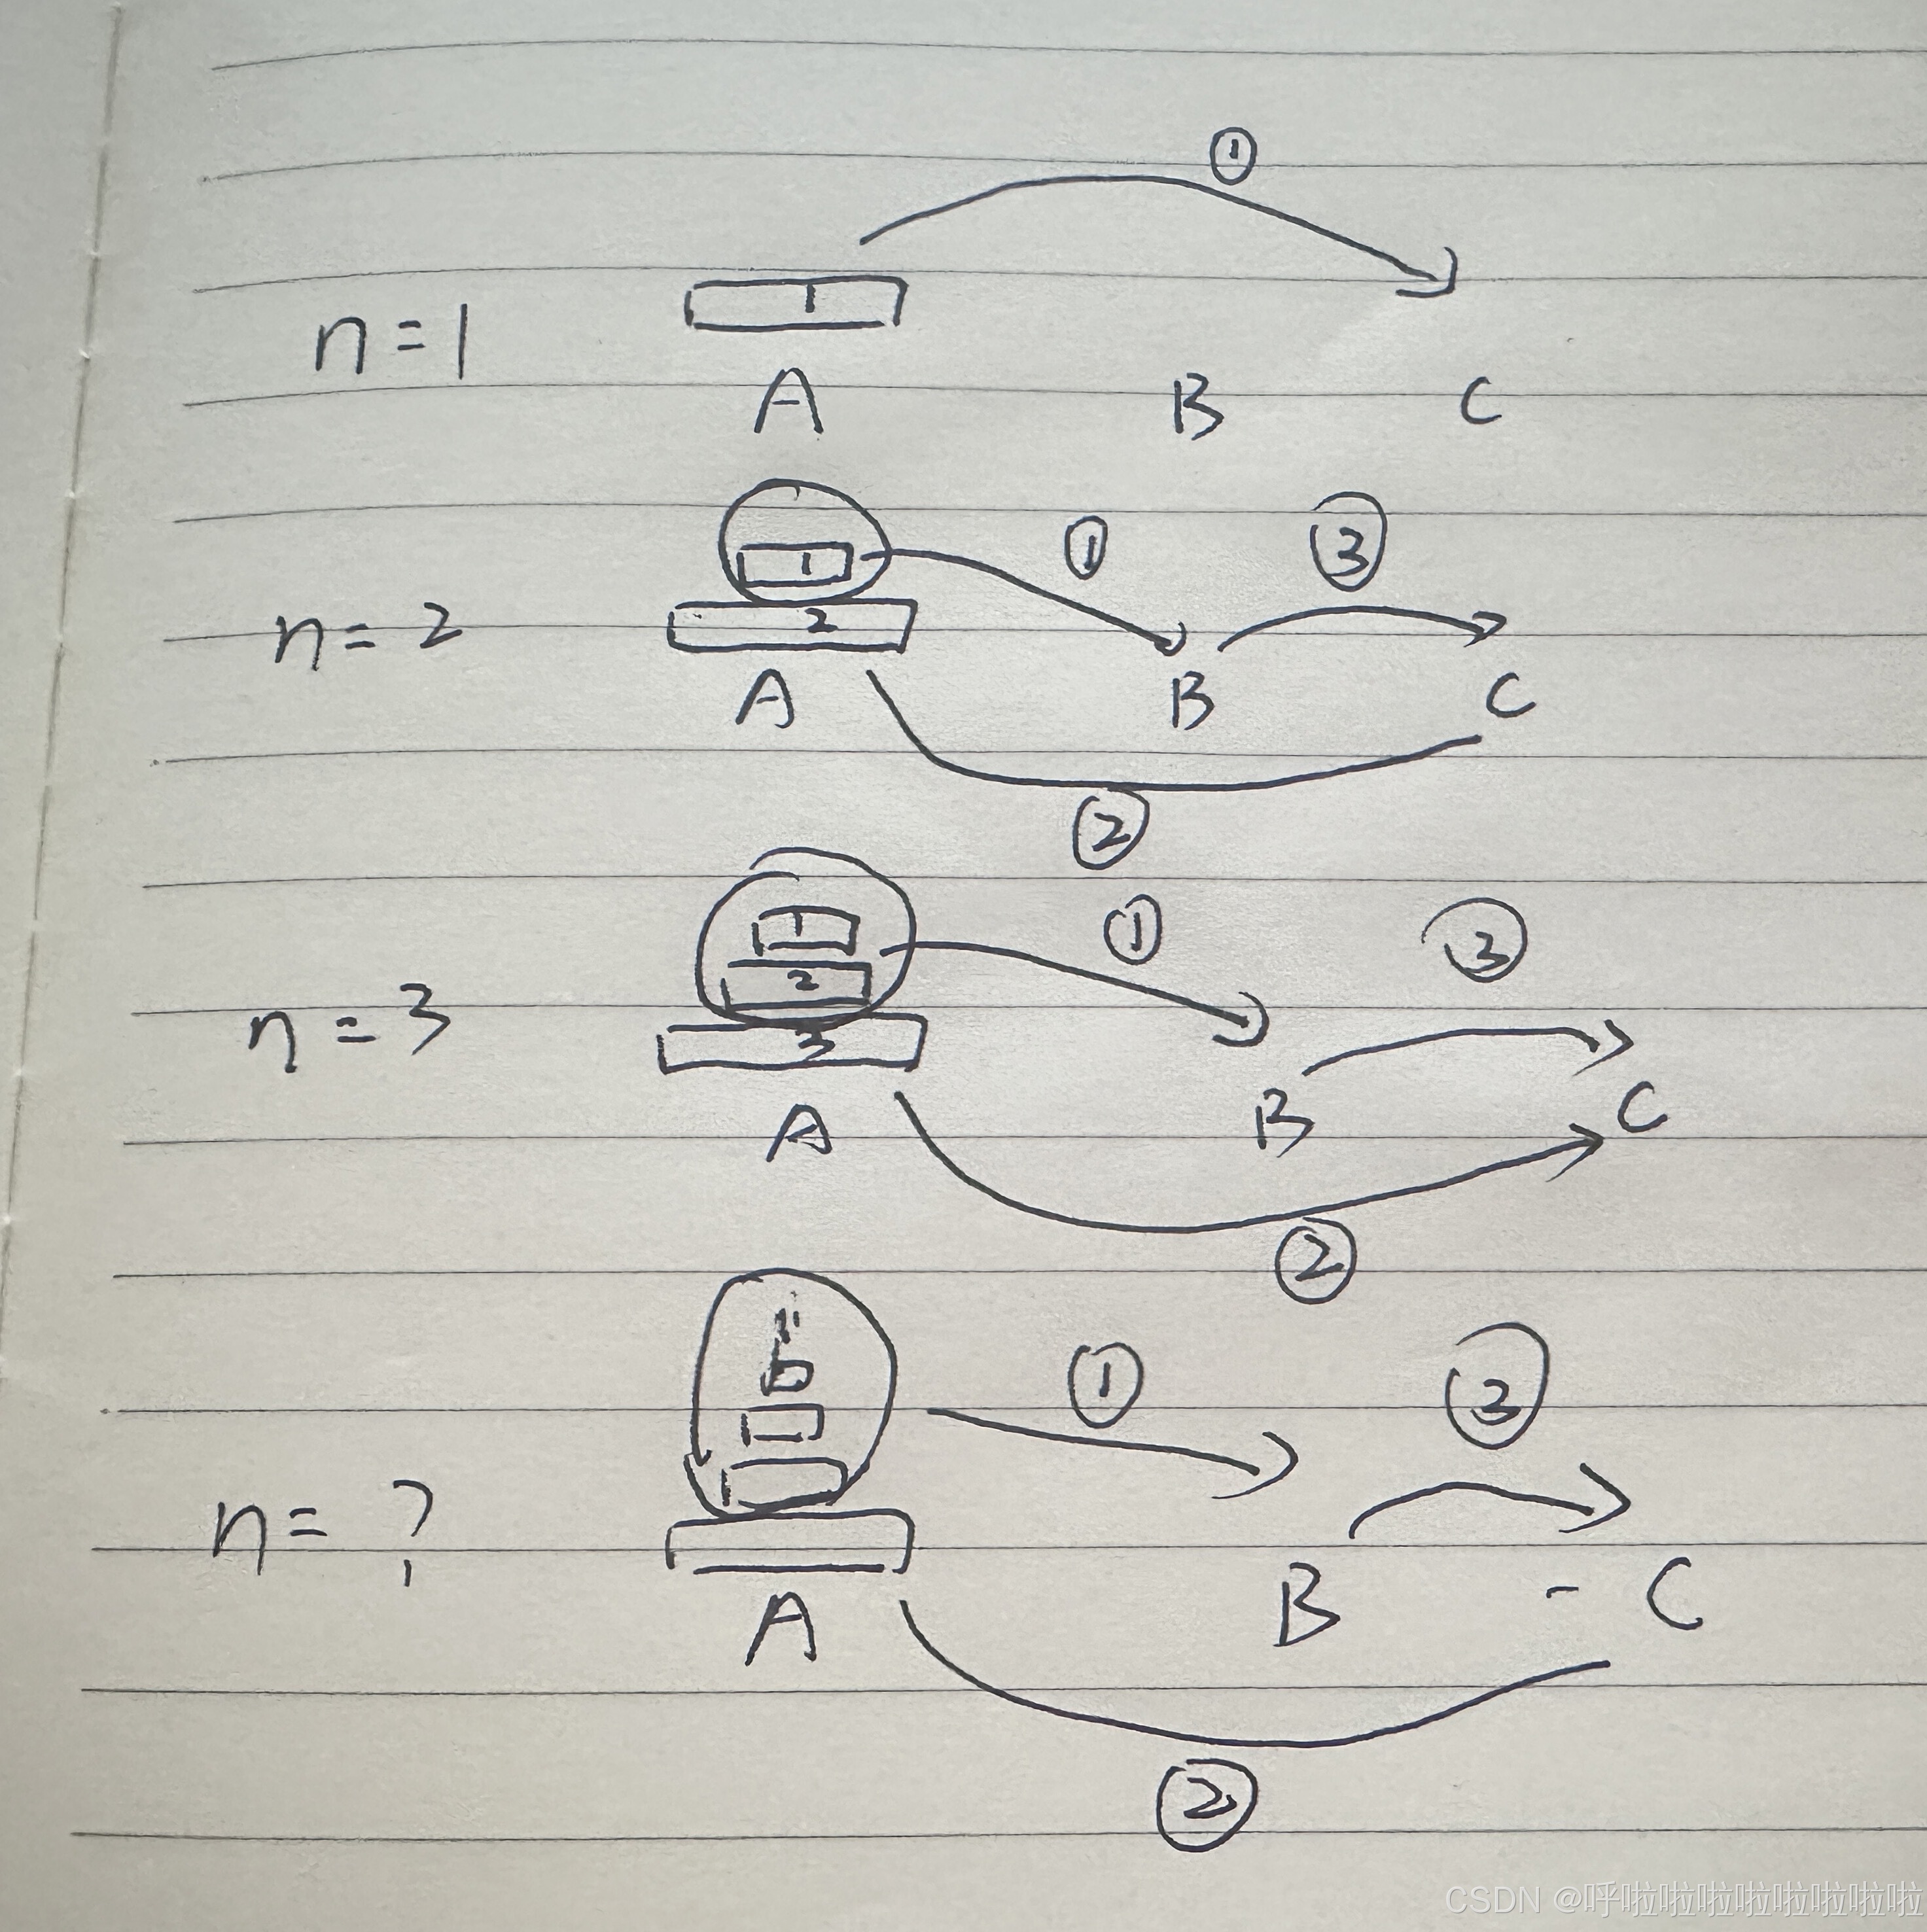 ①
1
n=1
A B C
① ③
1
2
n=2
A B C
②
① ③
1
2
n=3
3
A B C
②
① ③
n=?
A B - C
②
CSDN @呼啦啦啦啦啦啦啦啦